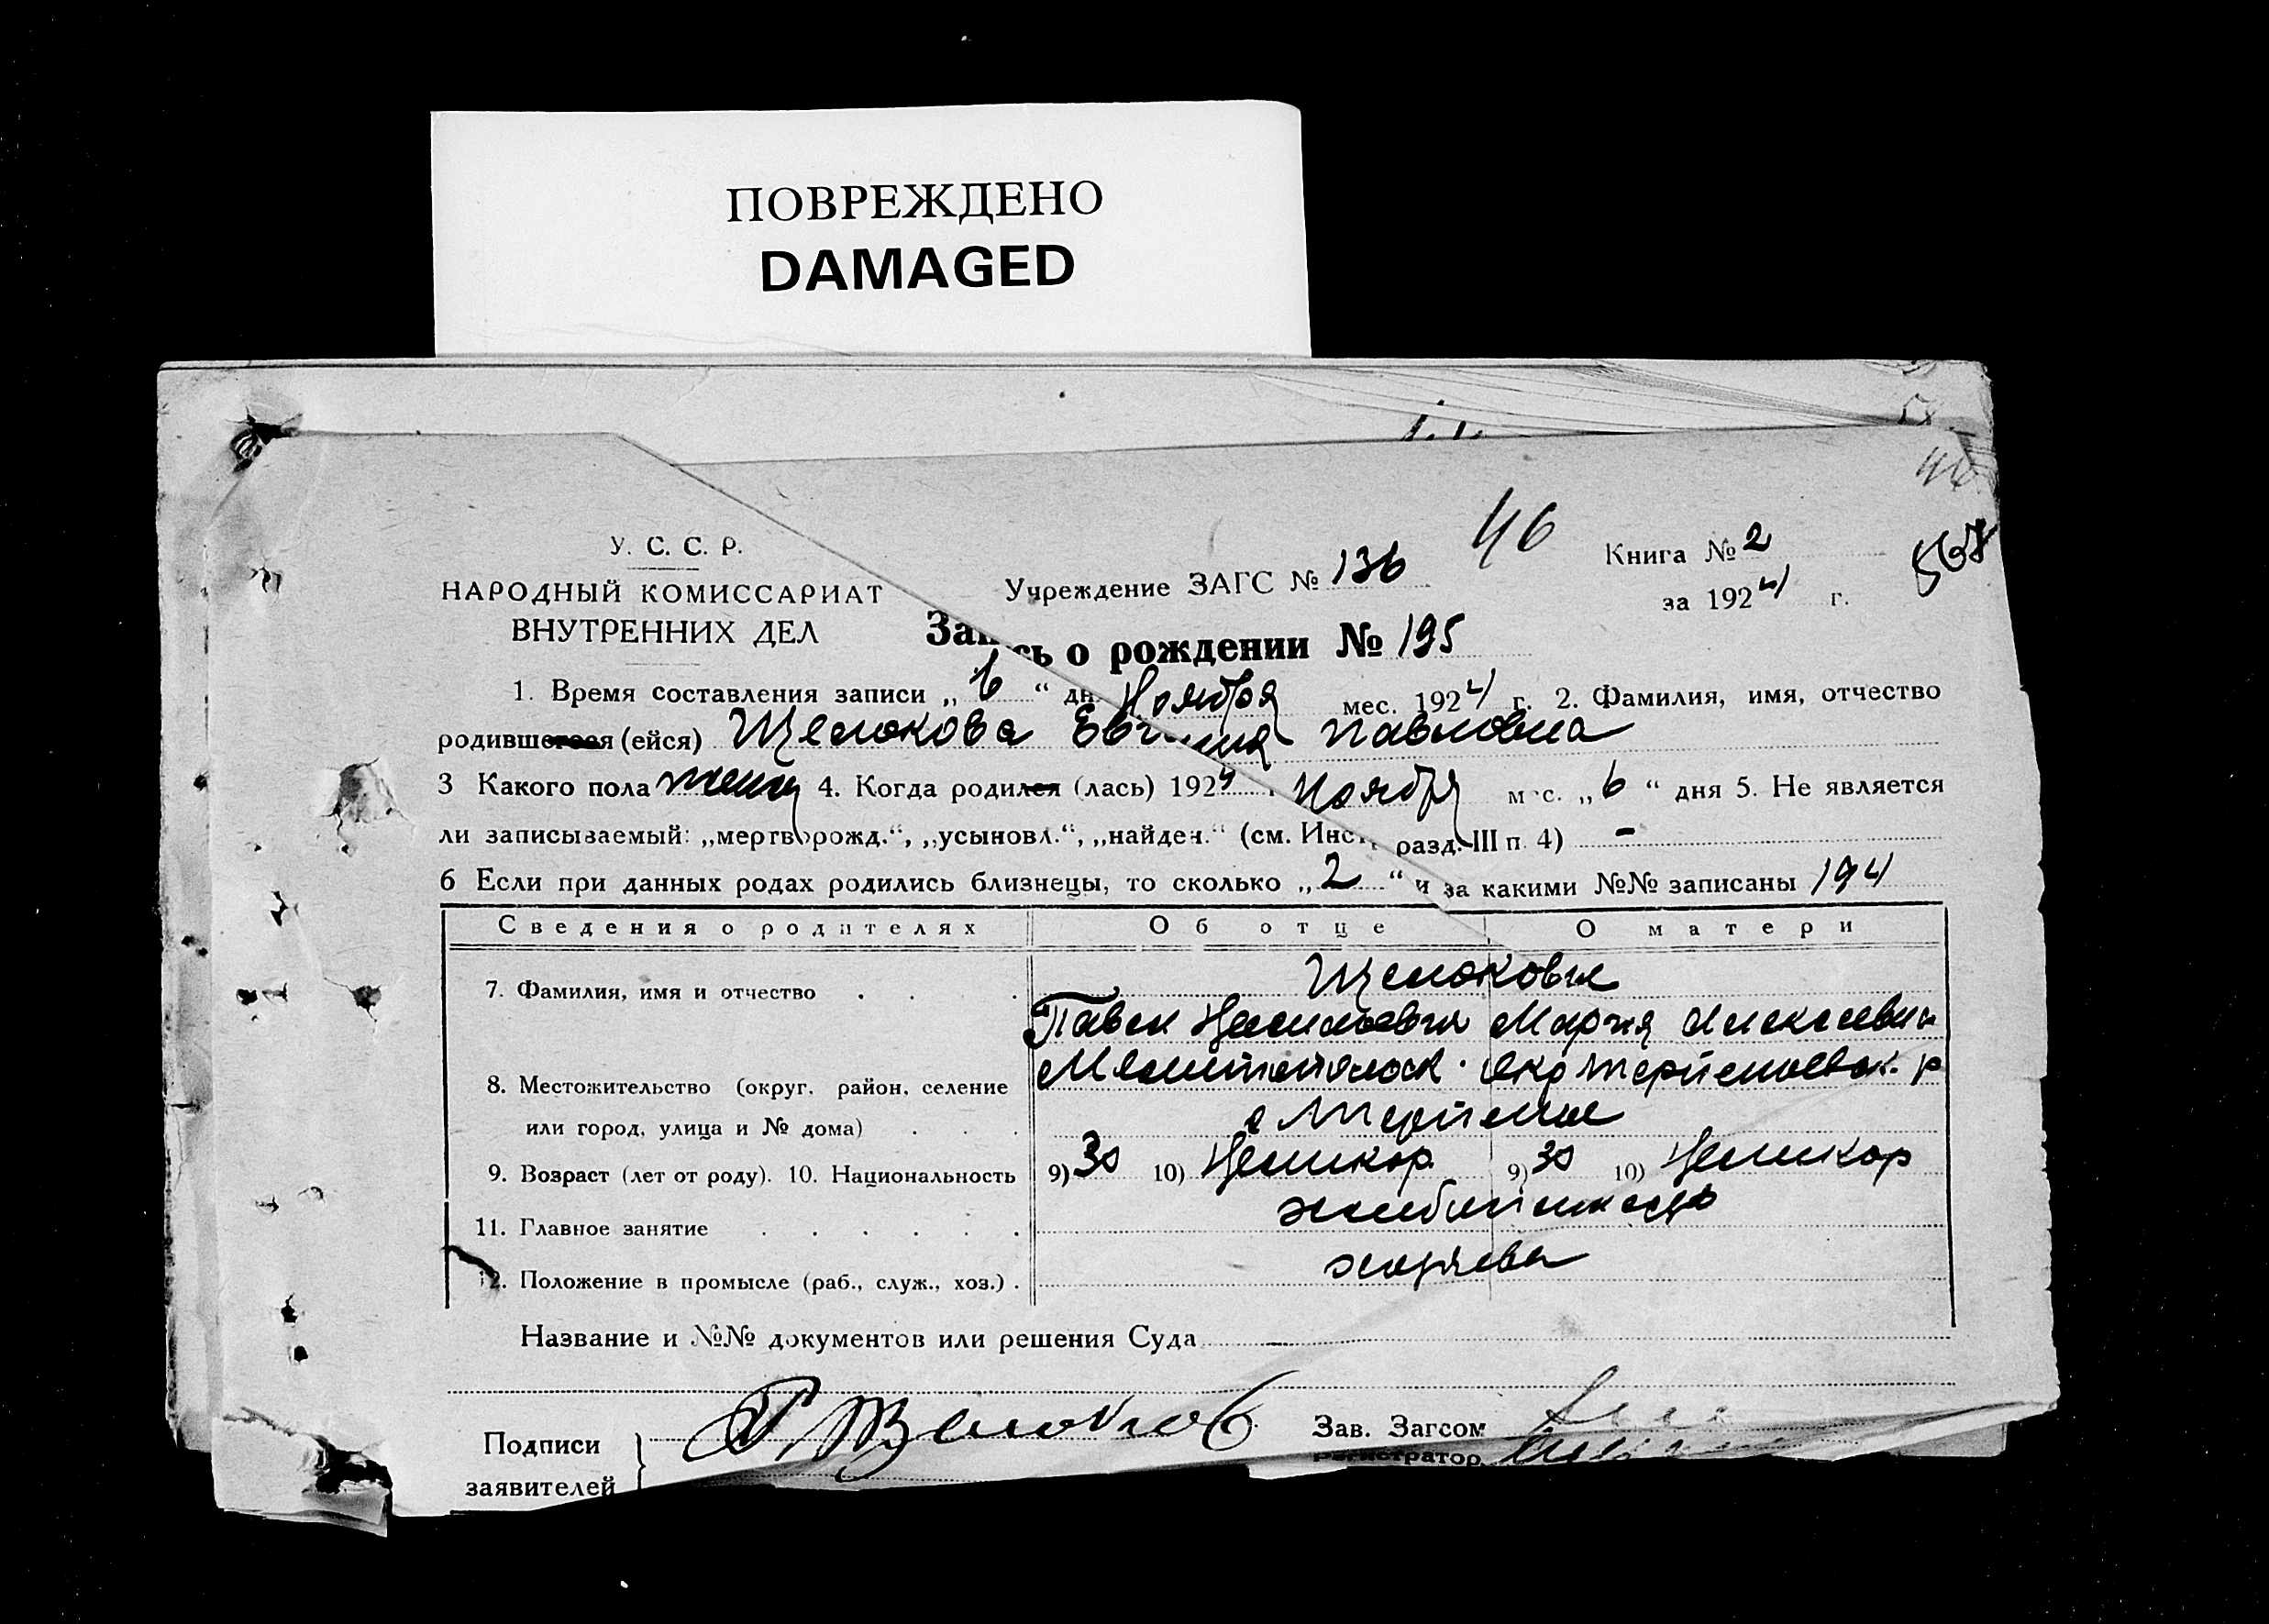 ПОВРЕЖДЕНО
DAMAGED
46
У. С. С. Р.
Книга № 2
568
НАРОДНЫЙ КОМИССАРИАТ
Учреждение ЗАГС № 136
за 1924 г.
ВНУТРЕННИХ ДЕЛ
Запись о рождении № 195
1. Время составления записи „6“ дн. Ноября мес. 1924 г. 2. Фамилия, имя, отчество
родившегося (ейся) Щелокова Евгения Павловна
3 Какого пола женск 4. Когда родился (лась) 1924 г. Ноября мес. „6“ дня 5. Не является
ли записываемый: „мертворожд.“, „усыновл.“, „найден.“ (см. Инстр. разд. III п. 4) -
6 Если при данных родах родились близнецы, то сколько „2“ и за какими №№ записаны 194
Сведения о родителях Об отце О матери
Щелоковы
7. Фамилия, имя и отчество
Павел Мария Алексеевн
8. Местожительство (округ, район, селение Мелитопольск.
или город, улица и № дома) с Терпение
9. Возраст (лет от роду). 10. Национальность 9) 30 10) 9) 30 10)
11. Главное занятие хлебопашество
12. Положение в промысле (раб., служ., хоз.) хозяева
Название и №№ документов или решения Суда
Подписи
заявителей
Зав. Загсом
Регистратор